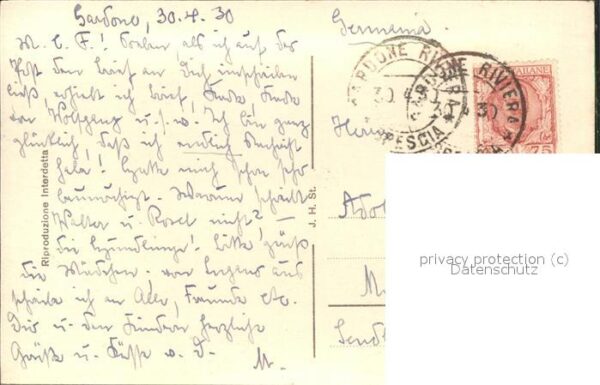 Gardone, 30.4.30
Germania
M. l. F.! Soeben, als ich auf der
Post den Brief an Dich einschreiben
ließ, erhielt ich Brief, Karte
von Wolfgang u.s.w. Ich bin ganz
glücklich, daß ich endlich Nachricht
habe! Hatte mich schon sehr
beunruhigt. Warum schreibt
Walter u. Rosel nicht?, –
die Schwindlinge! Bitte grüß
die Mädchen. von Lugano aus
schreibe ich an Alle, Freunde etc.
Dir u. den Kindern herzliche
Grüße u. Küsse v. D.
M.
Riproduzione Interdetta
J. H. St.
GARDONE RIVIERA
BRESCIA
30
GARDONE RIVIERA
30
75
Herrn
Adol
M
Send
privacy protection (c)
Datenschutz